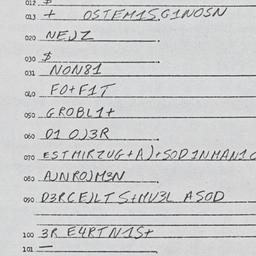 012 $
013 + OSTEM1S,G1NOSN
020 NEJJZ
030 $
031 NON81
040 FO+F1T
050 GROBL1+
060 D1 OJ3R
070 ESTMIRZUG+A)+SOD1NMAN1C
080 AJNROJM3N
090 D3RCEJLT S+MU3L ASOD
100 3R E4RTN1S+
101 —